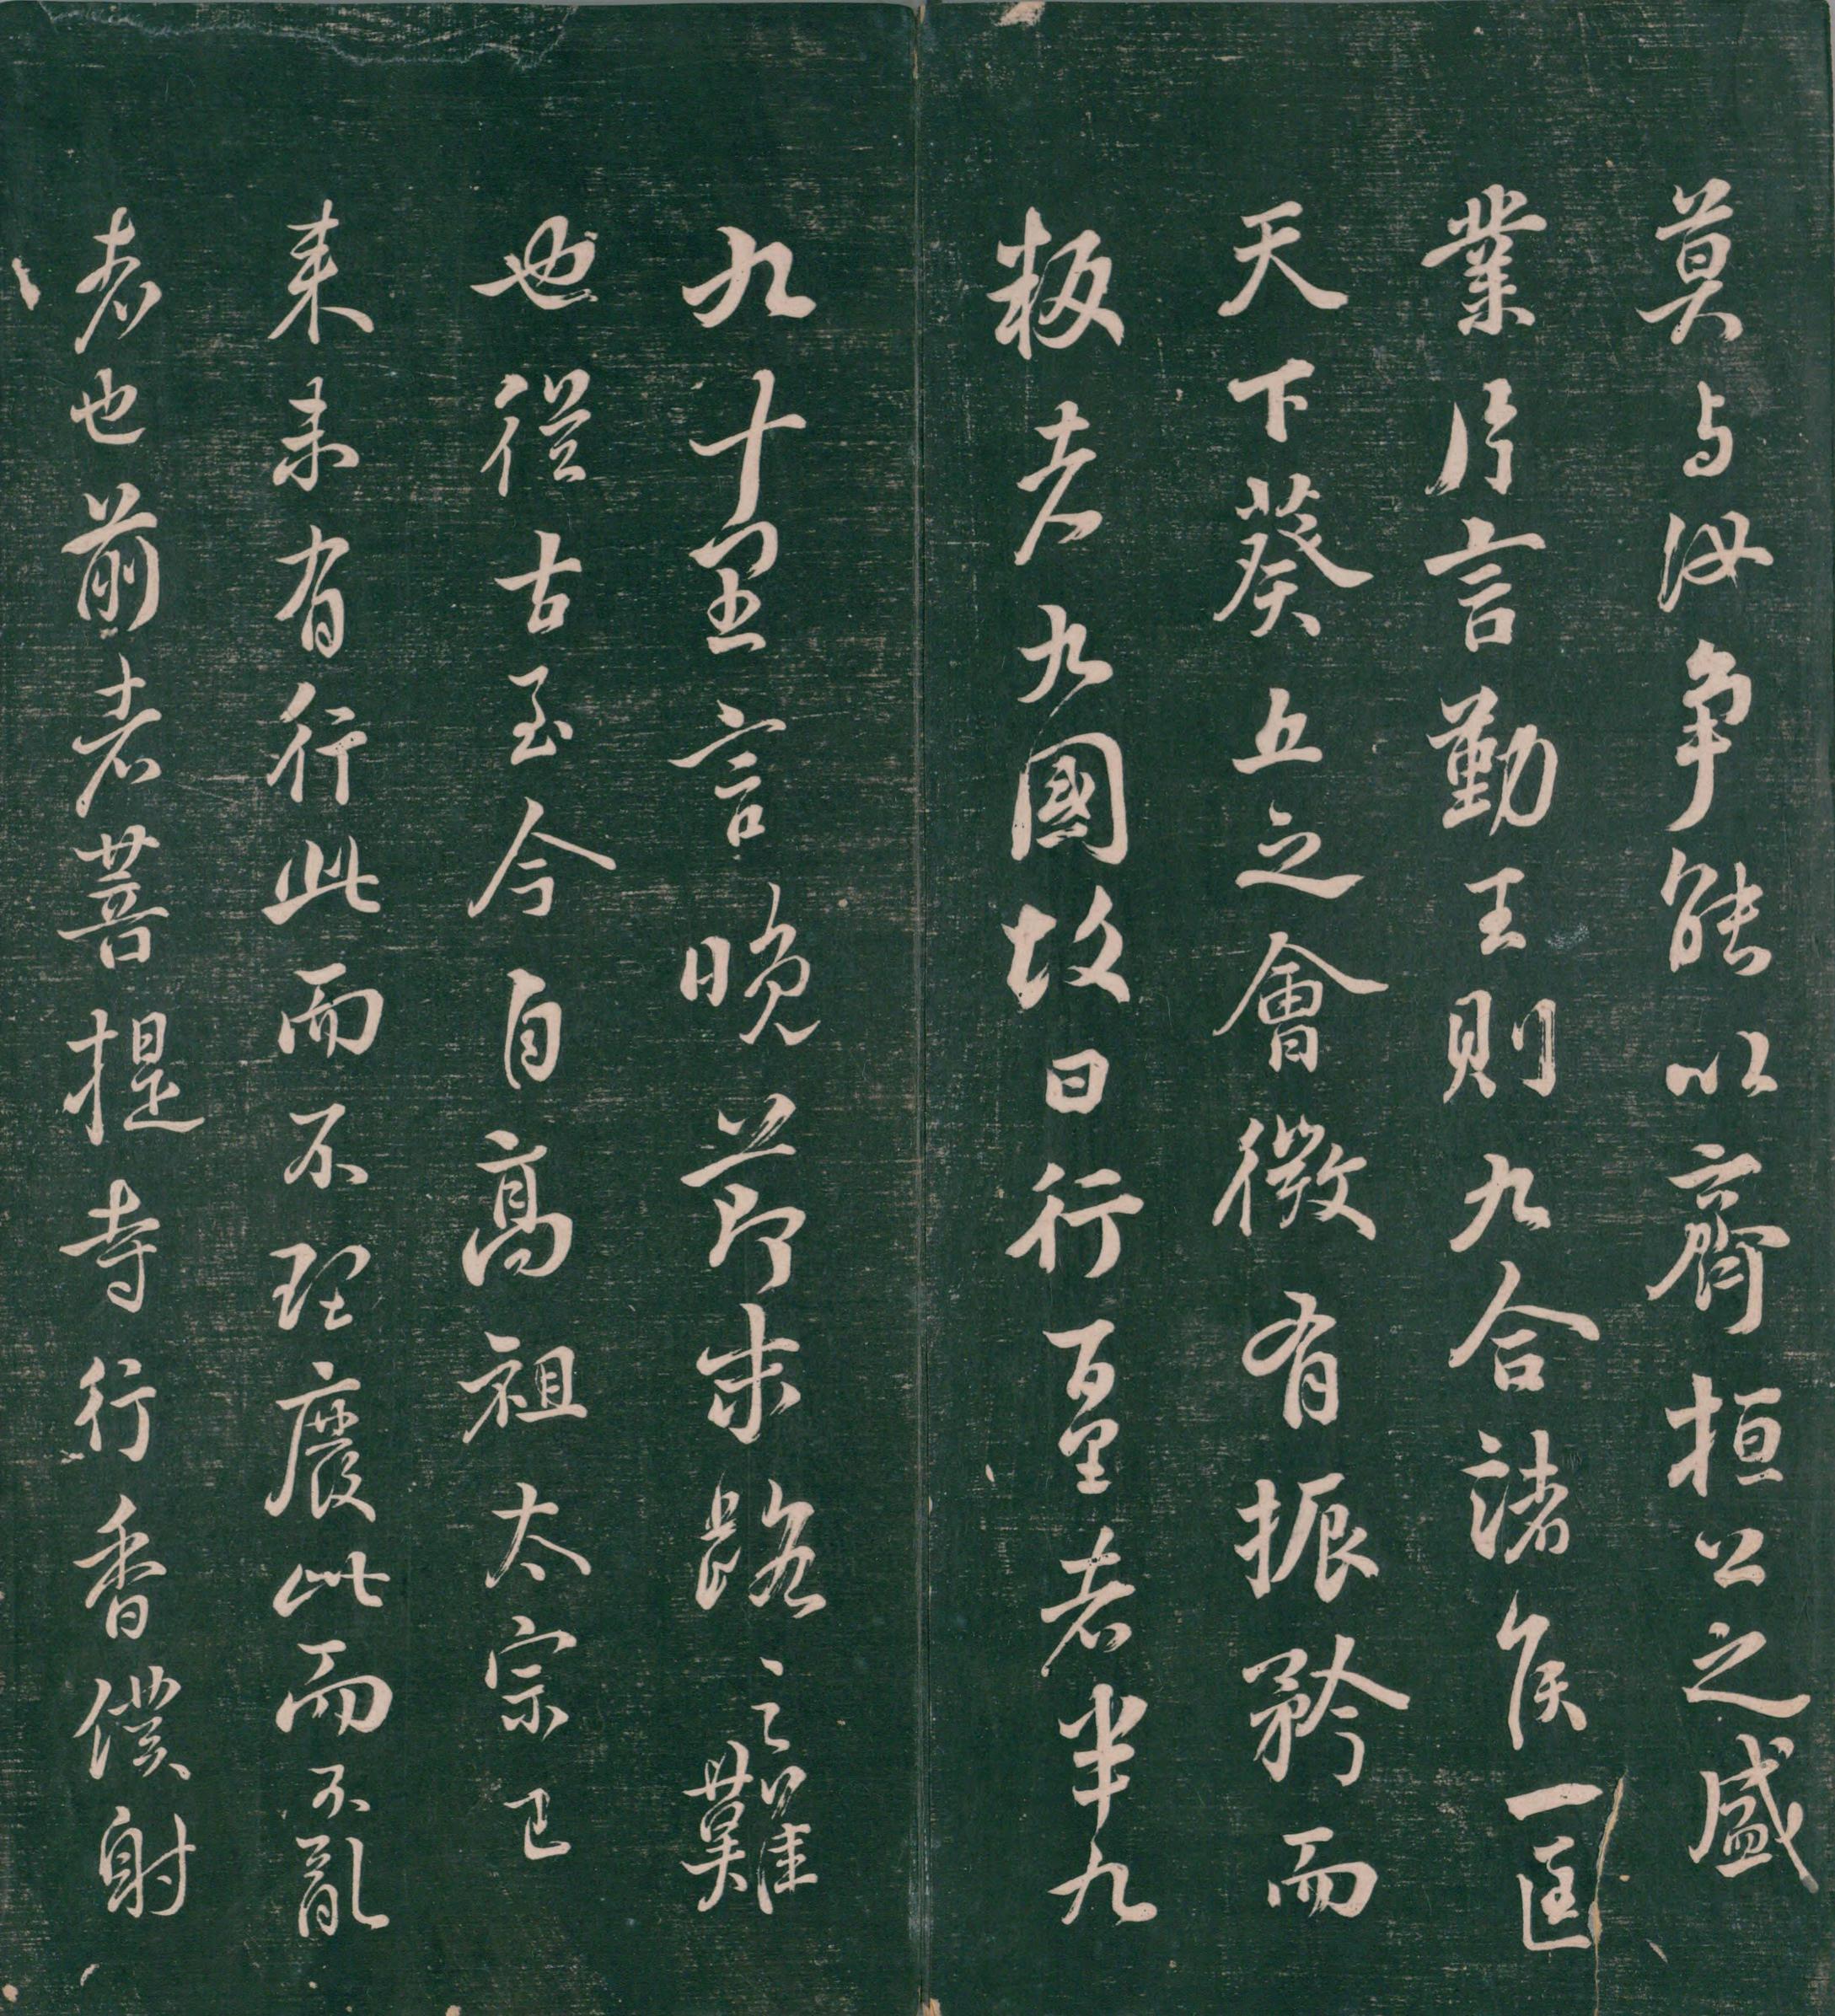 莫与汝争能以齊桓公之盛
業片言勤王則九合諸侯一匡
天下葵丘之會微有振矜而
叛者九國故曰行百里者半九
九十里言晚節末路之難
也從古至今自高祖太宗已
来未有行此而不理廢此而不亂
者也前者菩提寺行香僕射